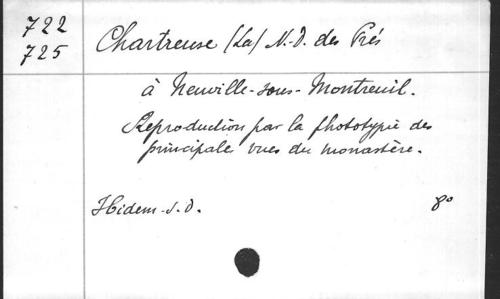 722
725
Chartreuse (La) N.-D. des Prés
à Neuville-sous-Montreuil.
Reproduction par la phototypie des
principales vues du monastère.
Ibidem-s.d. 8°